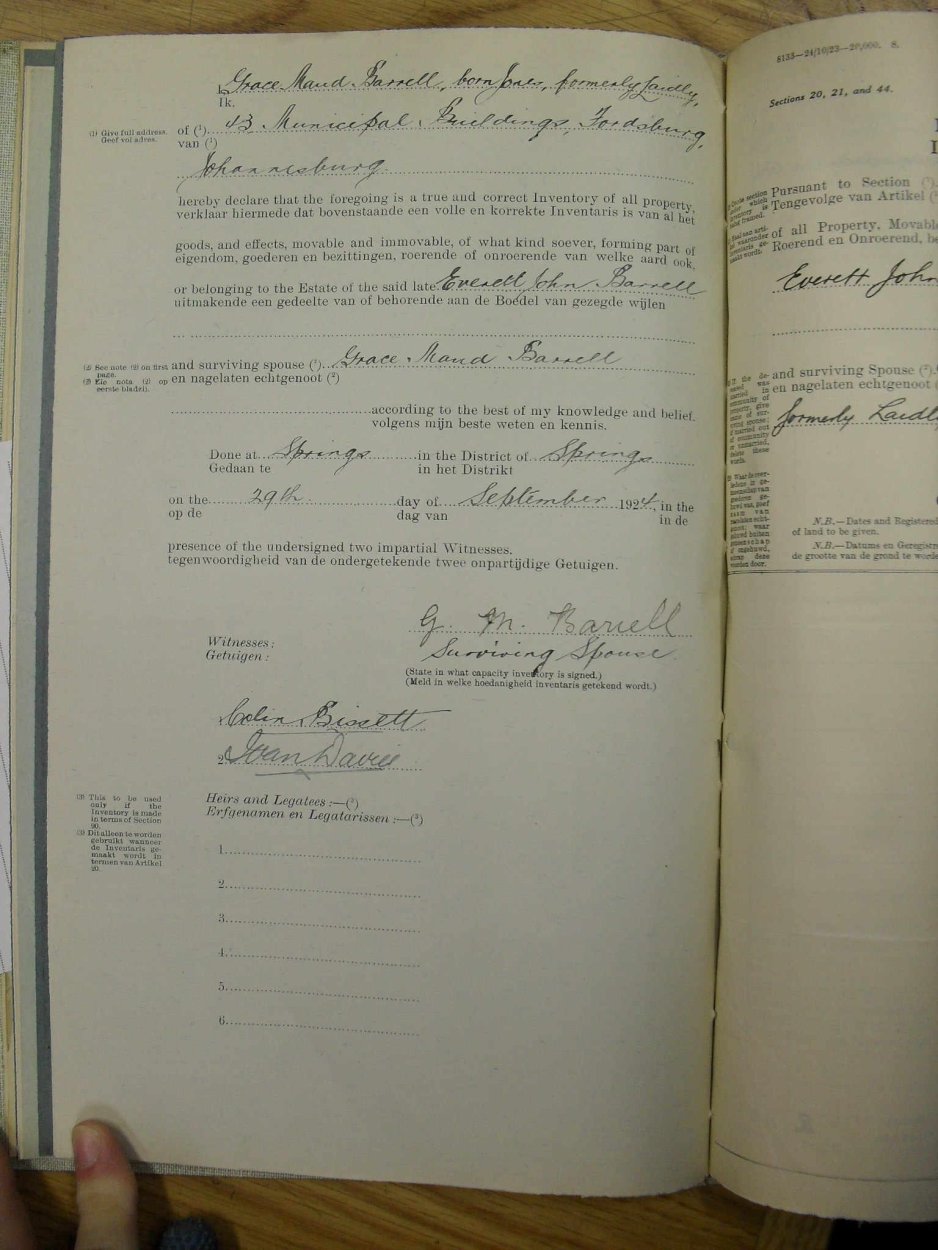 I, Grace Maud Barrell, born Jones, formerly Laidly,
Ik,
(1) Give full address.
Geef vol adres.
of (1) 43 Municipal Buildings, Fordsburg,
van (1)
Johannesburg
hereby declare that the foregoing is a true and correct Inventory of all property,
verklaar hiermede dat bovenstaande een volle en korrekte Inventaris is van al het
goods, and effects, movable and immovable, of what kind soever, forming part of
eigendom, goederen en bezittingen, roerende of onroerende van welke aard ook,
or belonging to the Estate of the said late Everett John Barrell
uitmakende een gedeelte van of behorende aan de Boedel van gezegde wijlen
(2) See note (2) on first page.
(2) Zie nota (2) op eerste bladzij.
and surviving spouse (2) Grace Maud Barrell
en nagelaten echtgenoot (2)
according to the best of my knowledge and belief.
volgens mijn beste weten en kennis.
Done at Springs in the District of Springs
Gedaan te in het Distrikt
on the 29th day of September 1924, in the
op de dag van in de
presence of the undersigned two impartial Witnesses.
tegenwoordigheid van de ondergetekende twee onpartijdige Getuigen.
G. M. Barrell
Witnesses:
Getuigen:
Surviving Spouse.
(State in what capacity inventory is signed.)
(Meld in welke hoedanigheid inventaris getekend wordt.)
1 Colin Bissett
2 Ivan Davies
(3) This to be used
only if the
Inventory is made
in terms of Section
20.
(3) Dit alleen te worden
gebruikt wanneer
de Inventaris ge-
maakt wordt in
termen van Artikel
20.
Heirs and Legatees:—(3)
Erfgenamen en Legatarissen:—(3)
1.
2.
3.
4.
5.
6.
8133—24/10/23—20,000. S.
Sections 20, 21, and 44.
Pursuant to Section (1)
Tengevolge van Artikel (
of all Property, Movabl
Roerend en Onroerend, be
Everett John
and surviving Spouse (2)
en nagelaten echtgenoot (
formerly Laidl
N.B.—Dates and Registered
of land to be given.
N.B.—Datums en Geregistr
de grootte van de grond te worde